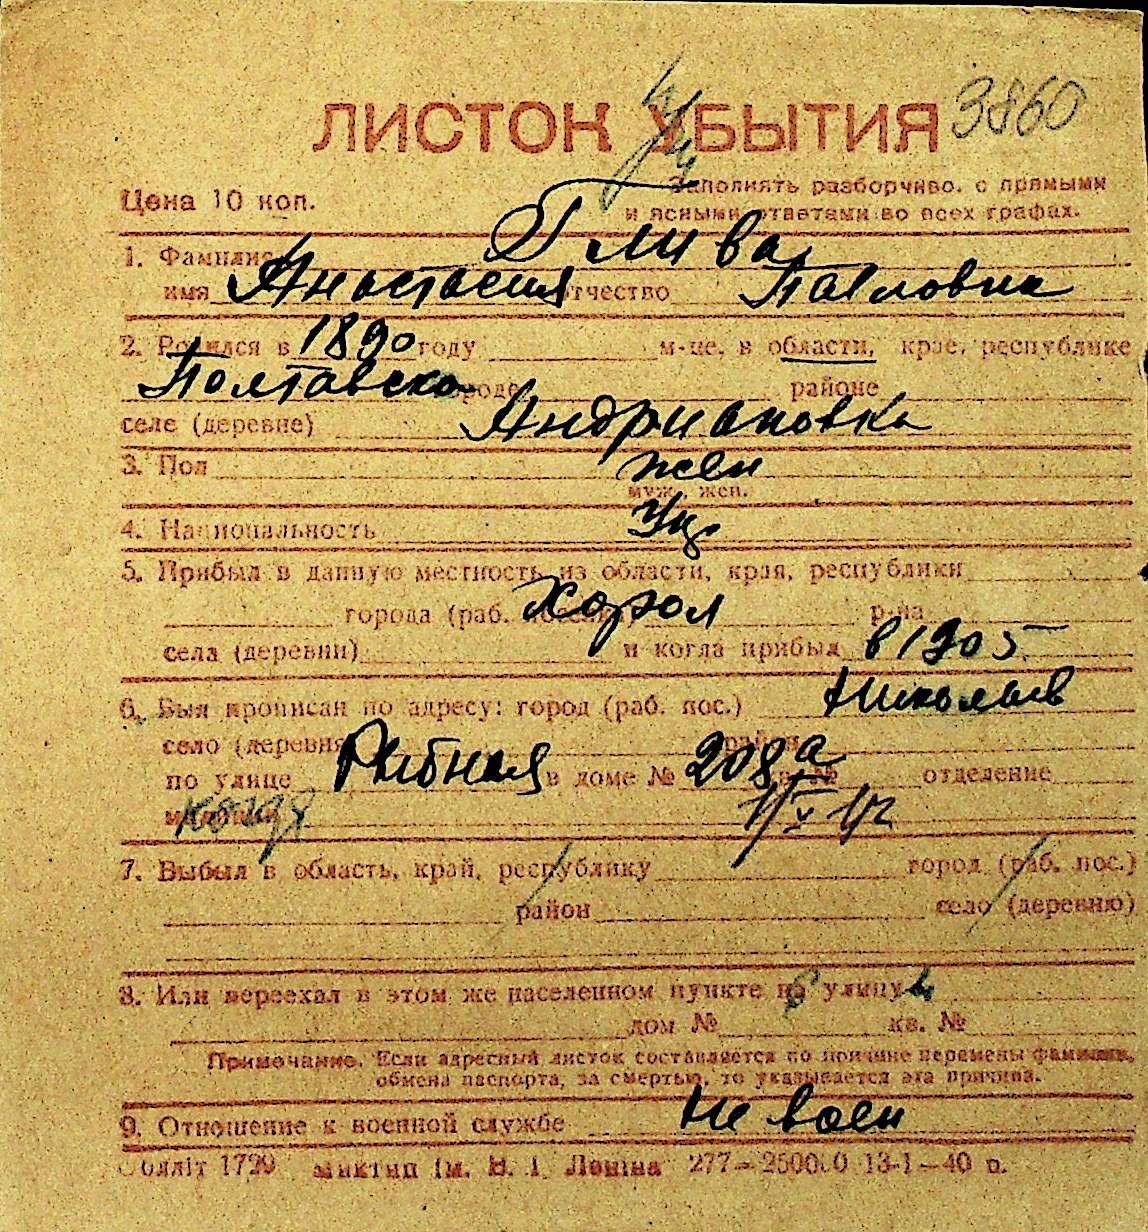 ЛИСТОК УБЫТИЯ 3860
Цена 10 коп.
Заполнять разборчиво, с прямыми
и ясными ответами во всех графах.
1. Фамилия Глива
имя Анастасия отчество Павловна
2. Родился в 1890 году м-це, в области, крае, республике
Полтавска городе районе
селе (деревне) Андриановка
3. Пол жен
муж., жен.
4. Национальность Ук.
5. Прибыл в данную местность из области, края, республики
города (раб. поселка) Хорол р-на
села (деревни) и когда прибыл в 1905
6. Был прописан по адресу: город (раб. пос.) Николаев
село (деревня) район
по улице Рыбная в доме № 208а кв. № отделение
милиции
7. Выбыл в область, край, республику город (раб. пос.)
район село (деревню)
8. Или переехал в этом же населенном пункте на улицу
дом № кв. №
Примечание. Если адресный листок составляется по причине перемены фамилии,
обмена паспорта, за смертью, то указывается эта причина.
9. Отношение к военной службе Не воен
Обліт 1720 ім. В. І. Леніна 277—250000 13-1—40 р.